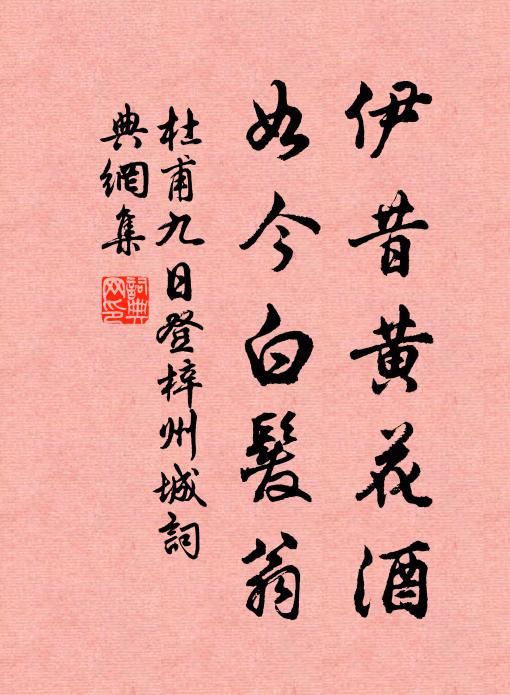 伊昔黄花酒
如今白髮翁
杜甫九日登梓州城詞
典網集
詞典网印